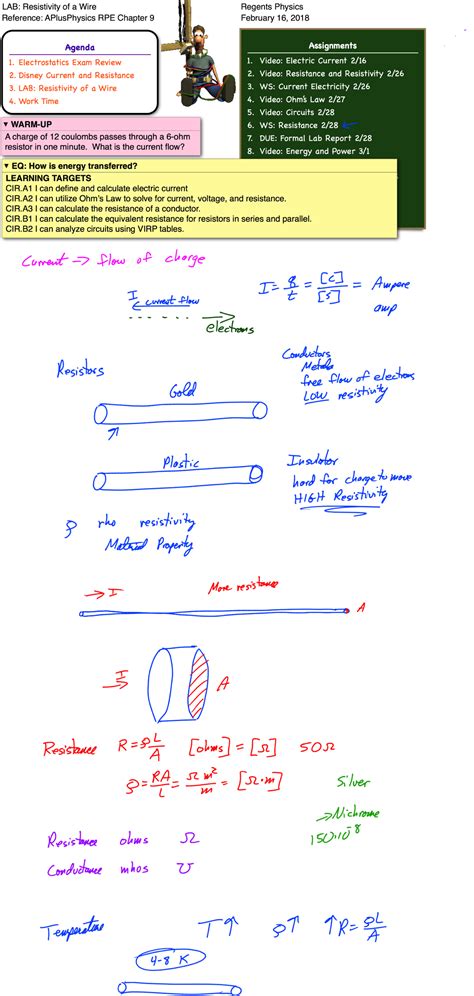 LAB: Resistivity of a Wire
Reference: APlusPhysics RPE Chapter 9
Regents Physics
February 16, 2018
Agenda
1. Electrostatics Exam Review
2. Disney Current and Resistance
3. LAB: Resistivity of a Wire
4. Work Time
Assignments
1. Video: Electric Current 2/16
2. Video: Resistance and Resistivity 2/26
3. WS: Current Electricity 2/26
4. Video: Ohm's Law 2/27
5. Video: Circuits 2/28
6. WS: Resistance 2/28 ←
7. DUE: Formal Lab Report 2/28
8. Video: Energy and Power 3/1
▼ WARM-UP
A charge of 12 coulombs passes through a 6-ohm
resistor in one minute. What is the current flow?
▼ EQ: How is energy transferred?
LEARNING TARGETS
CIR.A1 I can define and calculate electric current
CIR.A2 I can utilize Ohm's Law to solve for current, voltage, and resistance.
CIR.A3 I can calculate the resistance of a conductor.
CIR.B1 I can calculate the equivalent resistance for resistors in series and parallel.
CIR.B2 I can analyze circuits using VIRP tables.
Current → flow of charge
I = q/t = [C]/[s] = Ampere
amp
I
current flow
electrons
Resistors
Gold
Conductors
Metals
free flow of electrons
LOW resistivity
Plastic
Insulator
hard for charge to move
HIGH Resistivity
ρ rho resistivity
Material Property
→ I
More resistance
A
I
→
A
Resistance R = ρL/A [ohms] = [Ω] 50Ω
ρ = RA/L = Ω m²/m = [Ω·m]
Silver
→ Nichrome
150·10⁻⁸
Resistance ohms Ω
Conductance mhos ℧
Temperature T↑ ρ↑ ↑R = ρL/A
4-8 K